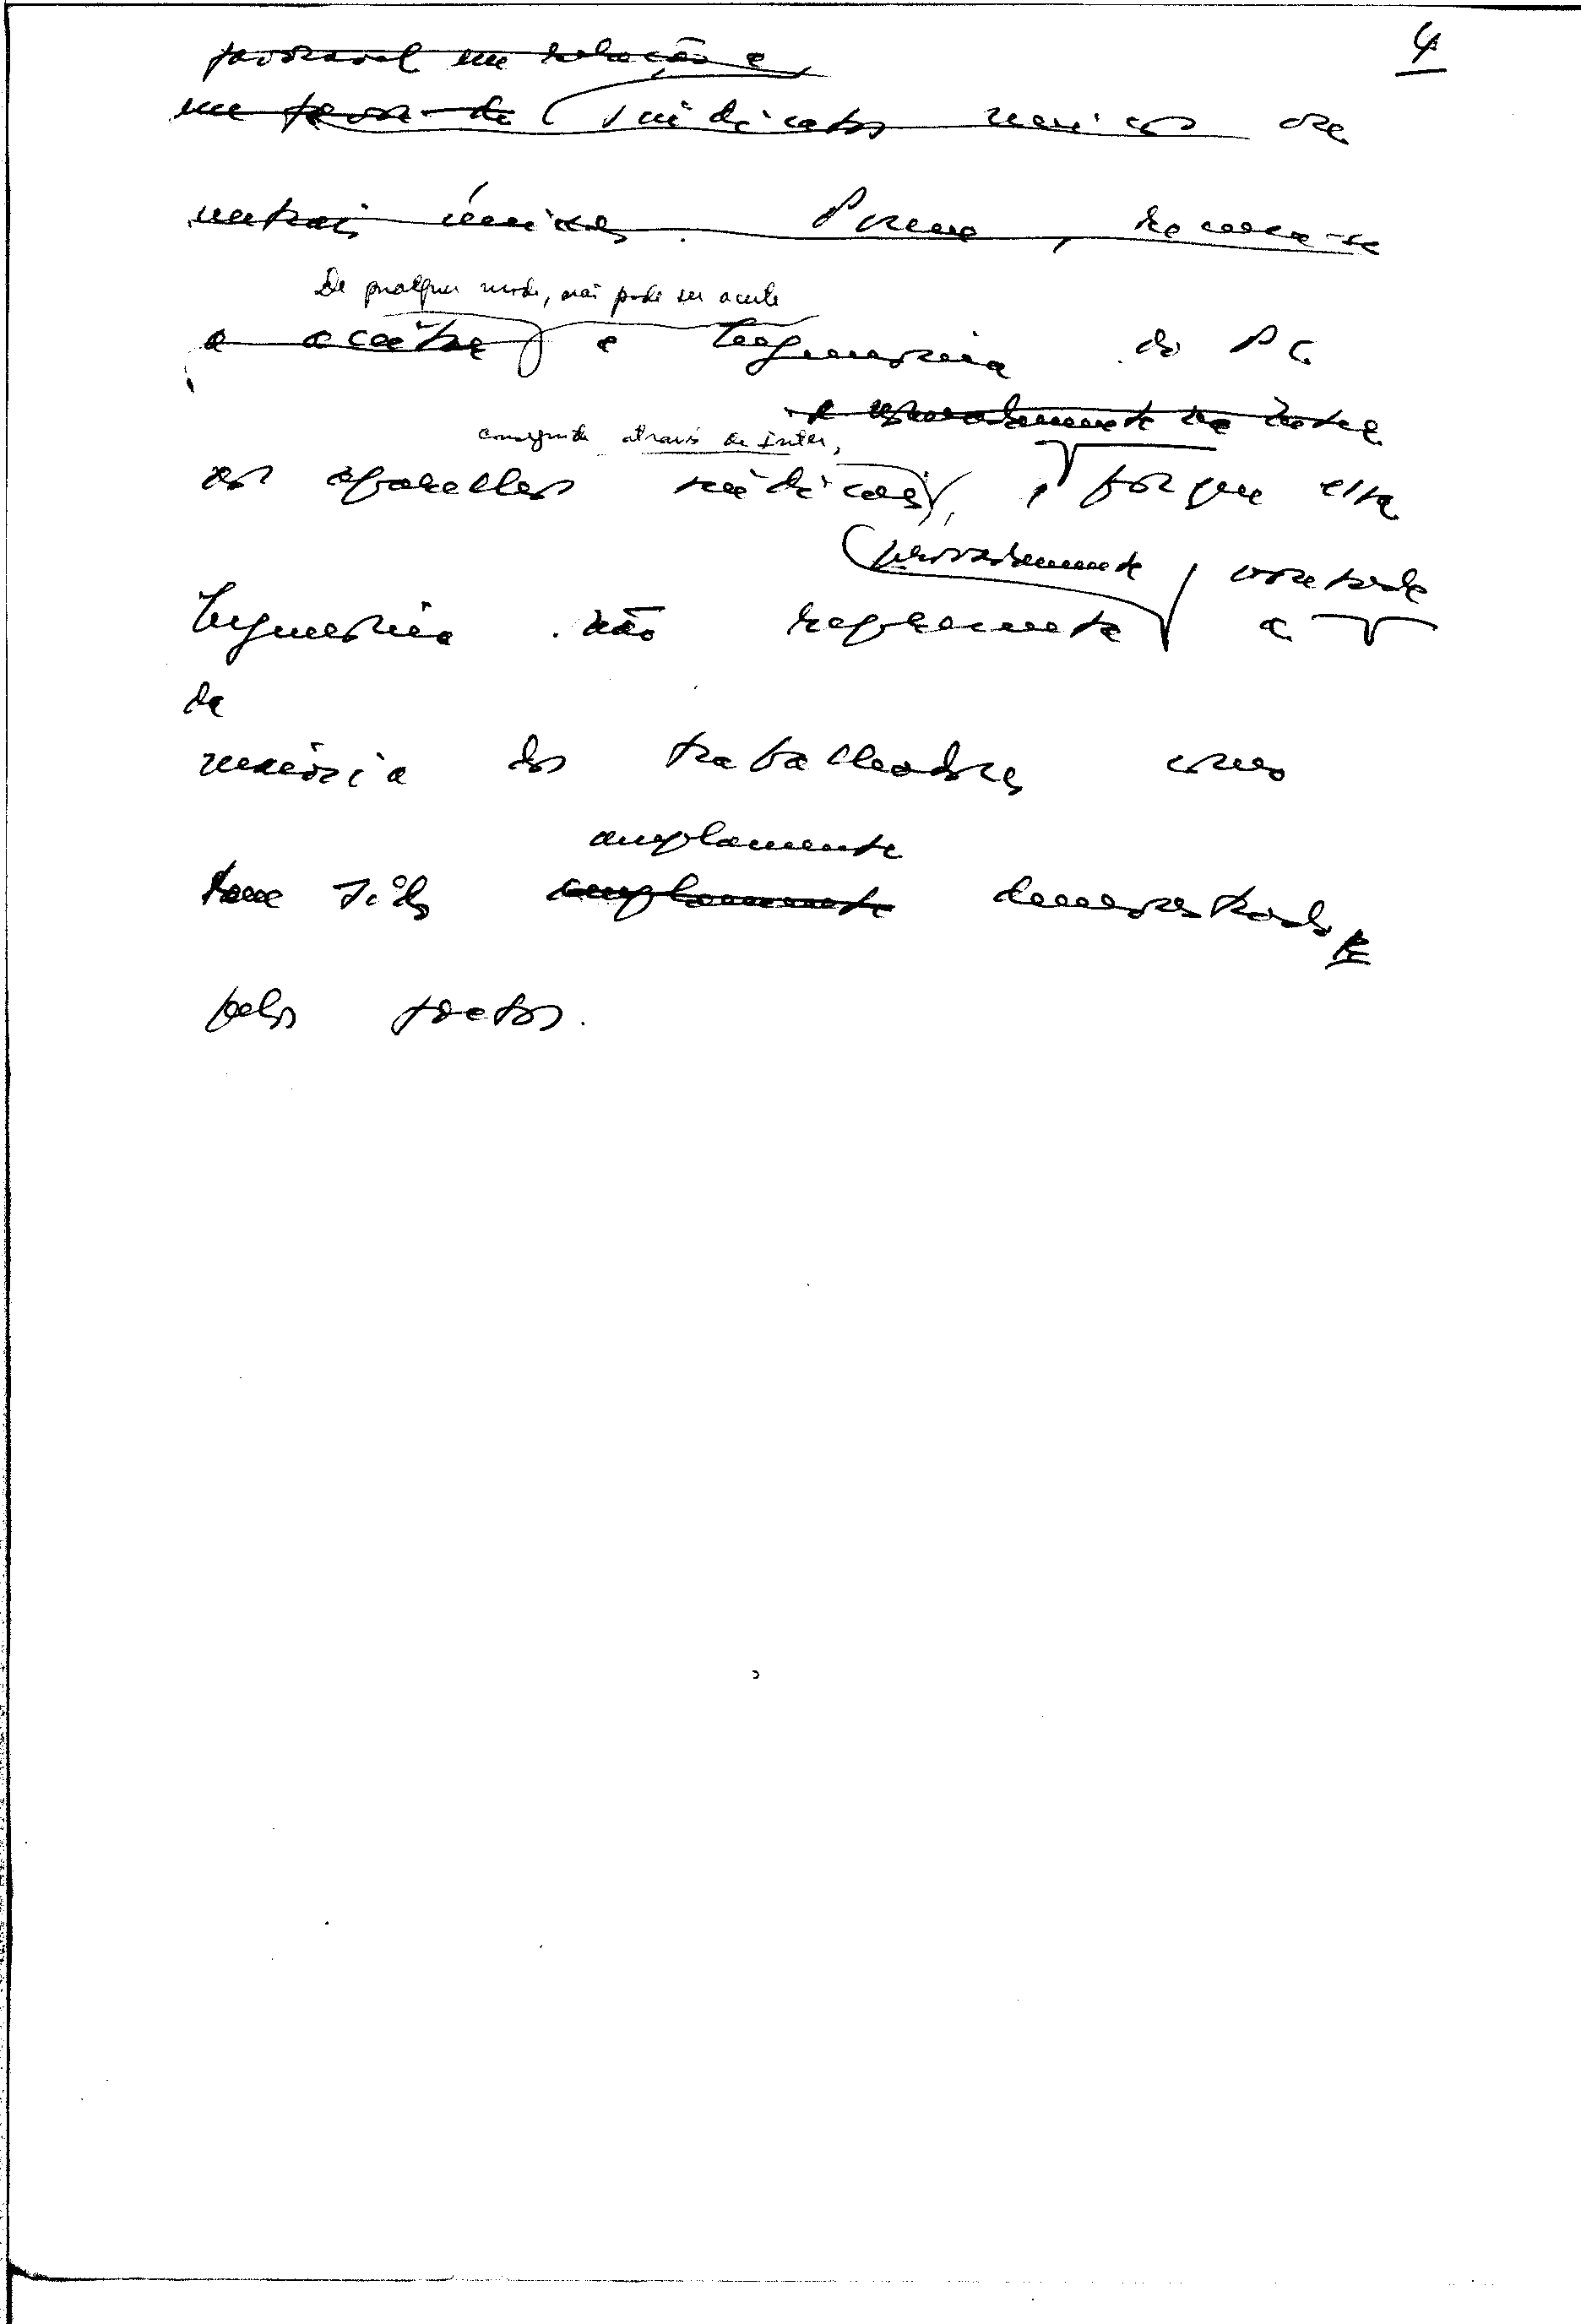 4
favorável em relação a
em favor de sindicatos únicos ou
centrais únicas. Porém, recusa-se
De qualquer modo, não pode ser aceite
a aceitar a hegemonia do PC
e
conseguida através da Inter,
nos aparelhos sindicais, porque essa
vontade
hegemonia não representa a
da
maioria dos trabalhadores como
amplamente
tem sido amplamente demonstrado
pelos factos.